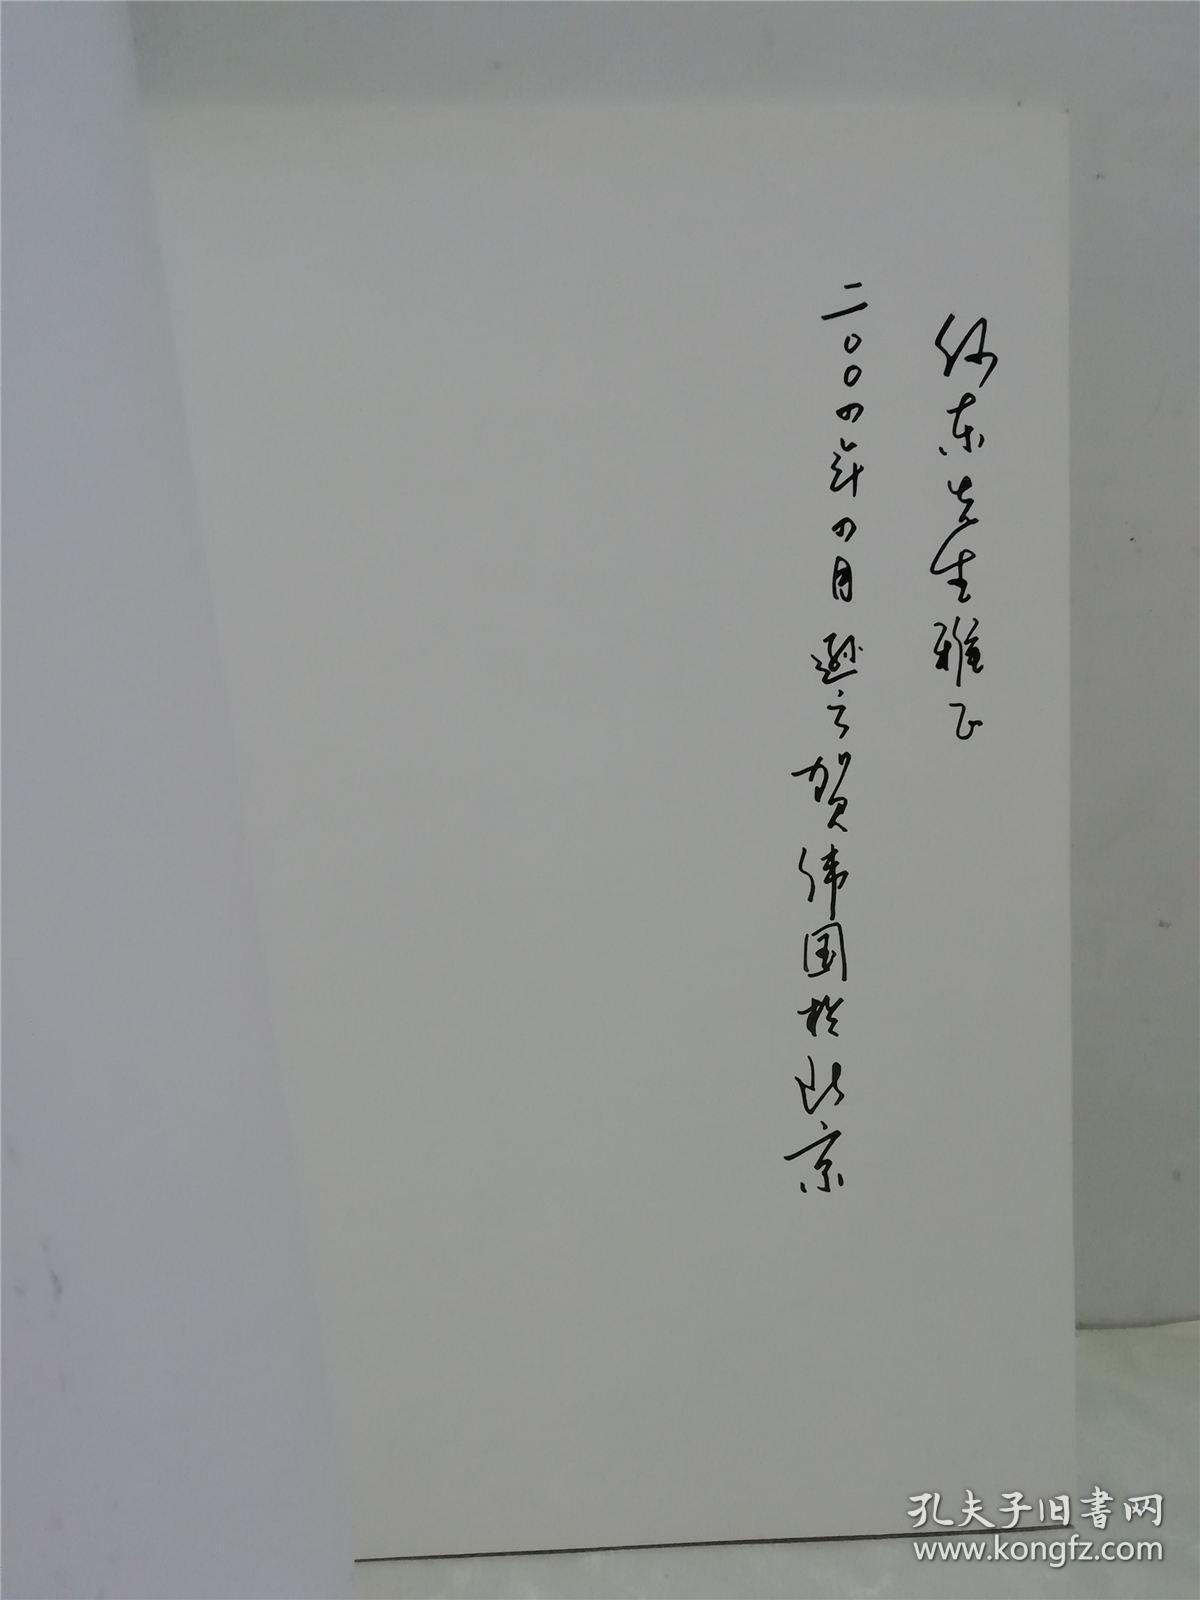 东先生雅正
二〇〇四年四月 贺伟国於北京
孔夫子旧書网
www.kongfz.com